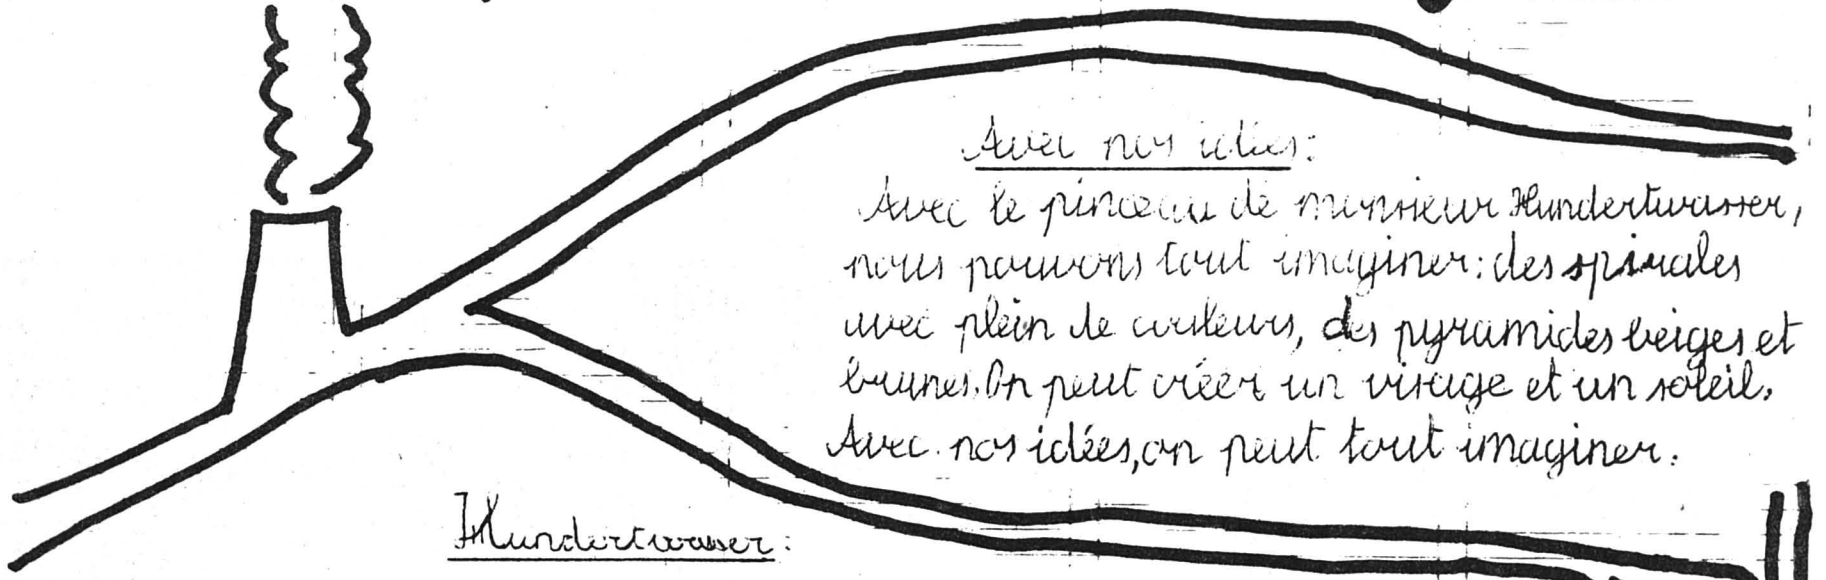 Avec nos idées:
Avec le pinceau de monsieur Hundertwasser,
nous pouvons tout imaginer: des spirales
avec plein de couleurs, des pyramides beiges et
brunes. On peut créer un visage et un soleil.
Avec nos idées, on peut tout imaginer.
Hundertwasser: